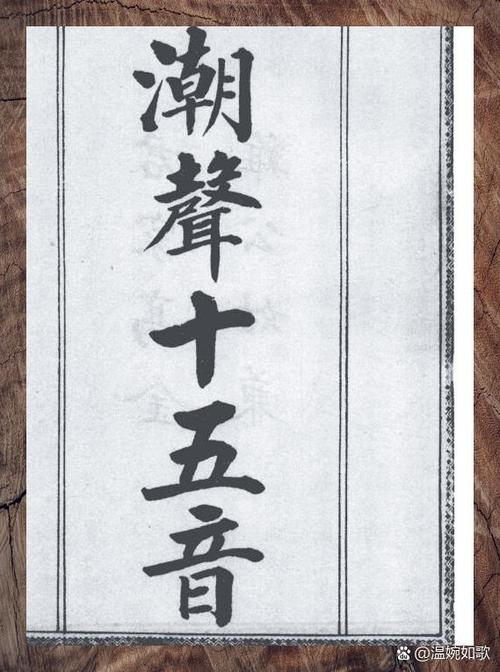 潮聲十五音
@温婉如歌